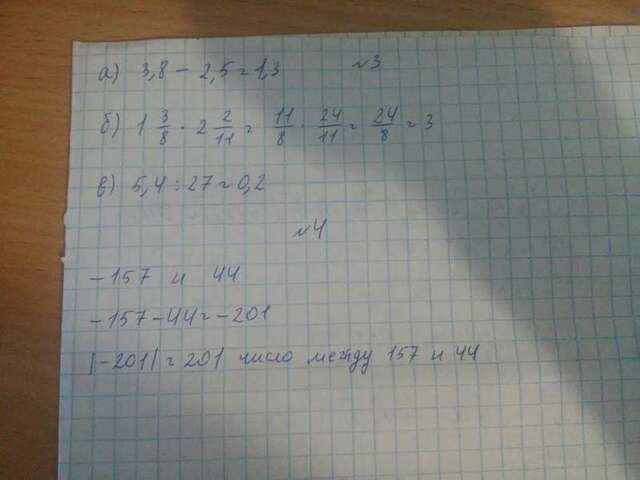 а) 3,8 - 2,5 = 1,3 №3
б) 1 3/8 · 2 2/11 = 11/8 · 24/11 = 24/8 = 3
в) 5,4 : 27 = 0,2
№4
-157 и 44
-157 - 44 = -201
|-201| = 201 число между 157 и 44